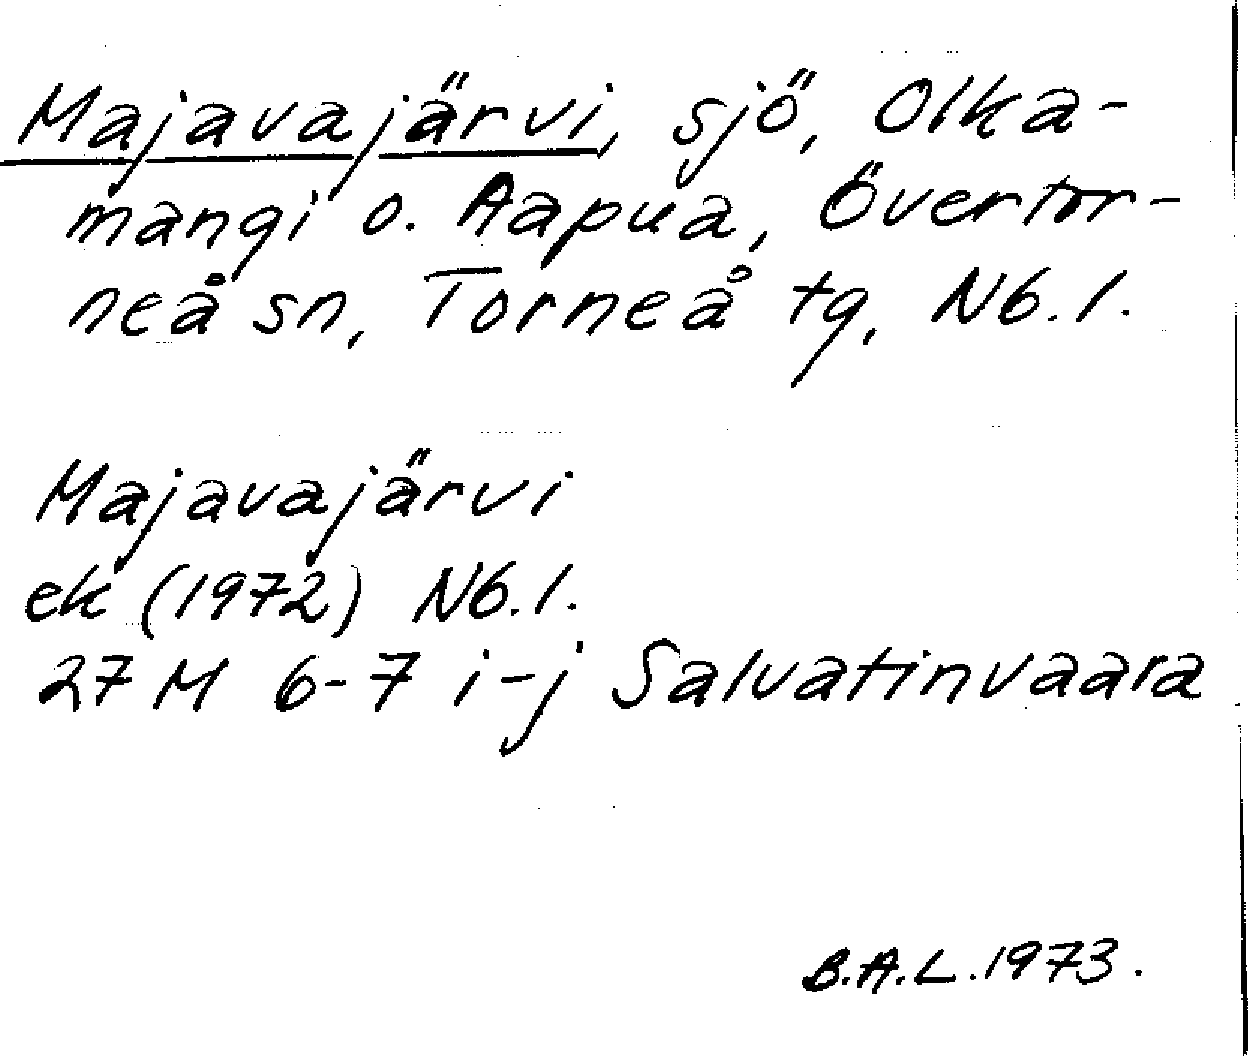 Majavajärvi, sjö, Olka-
mangi o. Aapua, Övertor-
neå sn, Torneå tg, Nb.l.
Majavajärvi
ek (1972) Nb.l.
27 M 6-7 i-j Salvatinvaara
B.A.L. 1973.